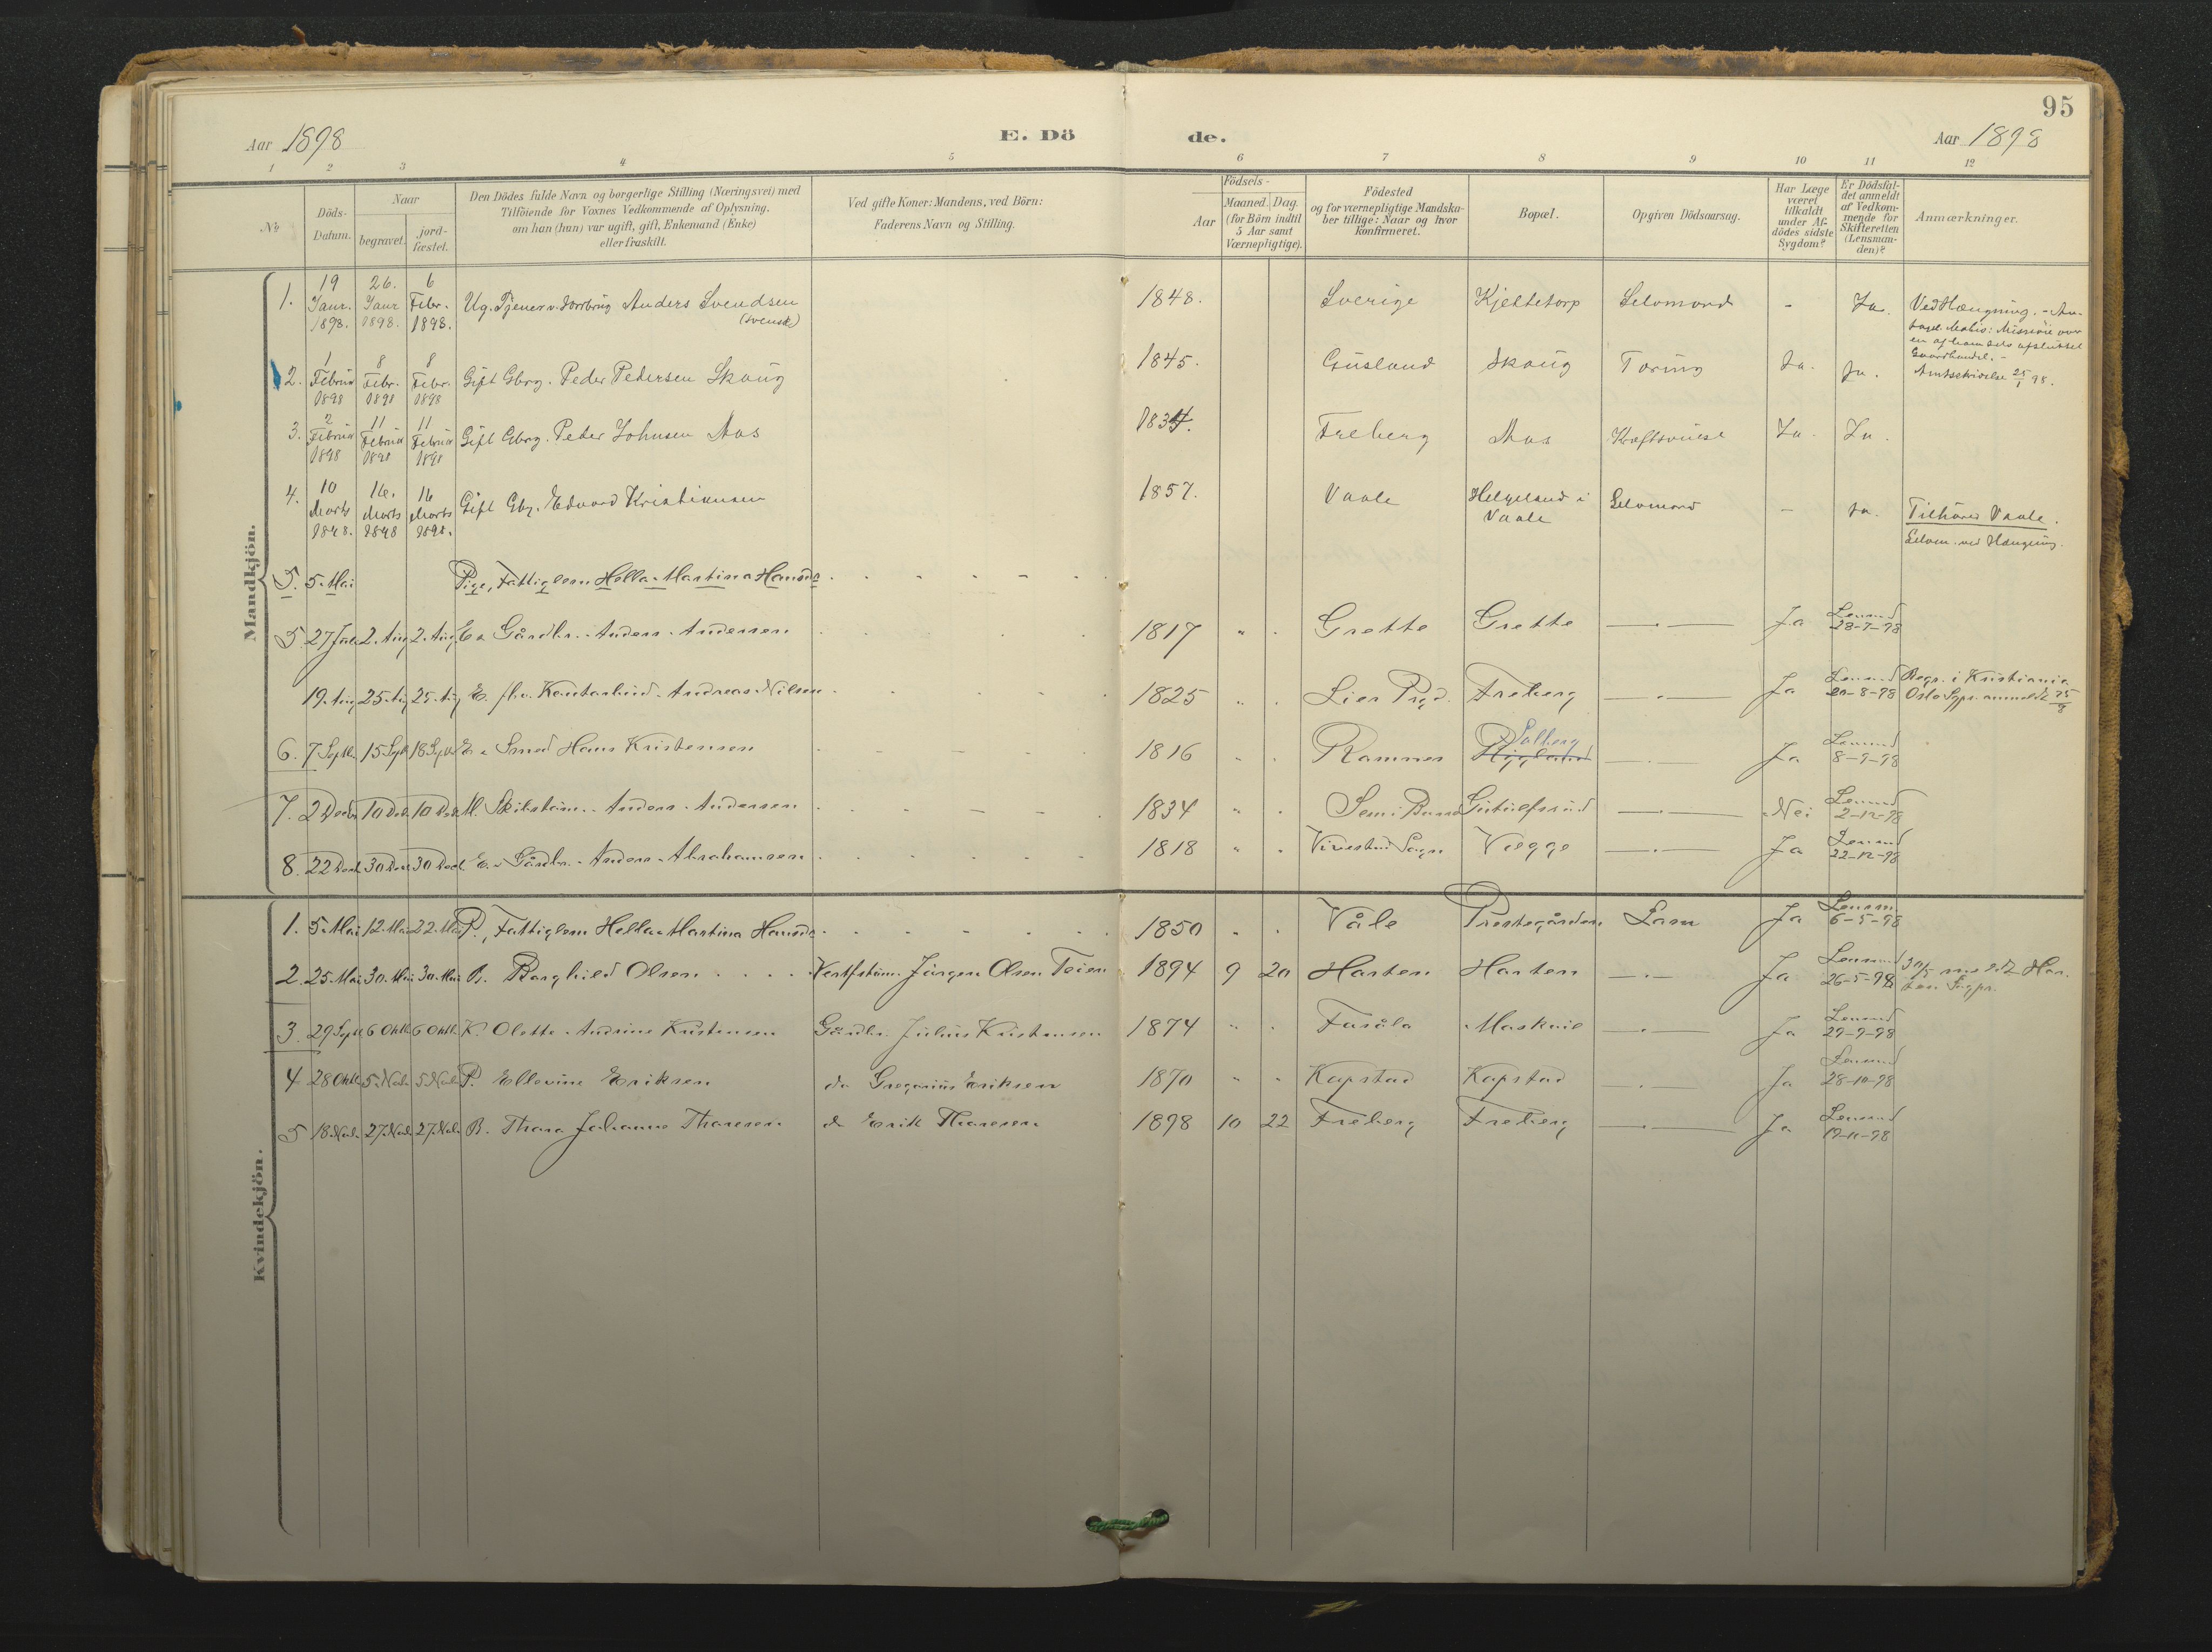 95
Aar 1898
E. Dö de.
Aar 1898
1 2 3 4 5 6 7 8 9 10 11 12
No
Döds-Datum.
Naar
begravet.
jord-fæstet.
Den Dödes fulde Navn og borgerlige Stilling (Næringsvei) med
Tilföiende for Voxnes Vedkommende af Oplysning,
om han (hun) var ugift, gift, Enkemand (Enke)
eller fraskilt.
Ved gifte Koner: Mandens, ved Börn:
Faderens Navn og Stilling.
Födsels-
Aar
Maaned. Dag.
(for Börn indtil
5 Aar samt
Værnepligtige).
Födested
og for værnepligtige Mandska-
ber tillige: Naar og hvor
Konfirmeret.
Bopæl.
Opgiven Dödsaarsag.
Har Læge
været
tilkaldt
under Af-
dödes sidste
Sygdom?
Er Dödsfal-
det anmeldt
af Vedkom-
mende for
Skifteretten
(Lensman-
den)?
Anmærkninger.
Mandkjön.
1. 19 Janr. 1898. 26. Janr 1898. 6 Febr. 1898. Ug. Anders Svendsen (svensk) 1848. Sverige Kjeltetorp Selvmord - Ja. Ved Hængning.
Amtsskrivelse 25/1 98.
2. 1 Februar 1898 8 Febr. 1898 8 Febr. 1898 Gift Gbrg. Peder Pedersen Skoug 1845. Gusland Skoug Tæring Ja. Ja.
3. 2 Februar 1898 11 Februar 1898 11 Februar 1898 Gift Gbrg. Peder Johnsen Aas 1834. Freberg Aas Ja. Ja.
4. 10 Marts 1898. 16. Marts 1898 16 Marts 1898. Gift Gbr. Edvard Kristiansen 1857. Vaale Helgeland i Vaale Selvmord - Ja. Tilhører Vaale.
Selvm. ved Hængning.
5. 5. Mai Pige, Fattiglem Hella Martina Hansdr
5 27 Juli 2. Aug 2. Aug E. Gårdbr. Anders Andersen 1817 " " Grette Grette Ja Lensmd 28-7-98
19. Aug 25. Aug 25. Aug E. fhv. Andreas Nilsen 1825 " " Lier Prgd. Freberg Ja Lensmd 20-8-98 Begr. i Kristiania
Oslo 25/8
6. 7 Septb. 15 Septb 18 Septb E. Smed Hans Kristensen 1816 " " Ramnes Solberg Ja Lensmd 8-9-98
7. 2 Decb 10 Decb 10 Decb M. Skibstøm. Anders Andersen 1834 " " Sem i Ramnes Nei Lensmd 2-12-98
8. 22 Decb 30 Decb 30 Decb E. Gårdbr. Anders Abrahamsen 1818 " " Vivestad Sogn Vegge Ja Lensmd 22-12-98
Kvindekjön.
1. 5. Mai 12. Mai 22. Mai P., Fattiglem Hella Martina Hansdr 1850 " " Våle Prestegården Lam Ja Lensm. 6-5-98
2. 25. Mai 30. Mai 30. Mai B. Borghild Olsen Jørgen Olsen Teien 1894 9 20 Horten Horten Ja Lensmd 26-5-98
3. 29 Septb 6 Oktb 6 Oktb K. Olette Andrine Kristensen Gårdbr. Julius Kristensen 1874 " " Fusåla Ja Lensmd 29-9-98
4 28 Oktb 5. Novb 5 Novb P. Ellevine Eriksen do Gregorius Eriksen 1870 " " Kapstad Kapstad Ja Lensmd 28-10-98
5 18 Novb. 27. Novb 27. Novb B. Thora Johanne Thoresen do Erik Thoresen 1898 10 22 Freberg Freberg Ja Lensmd 19-11-98